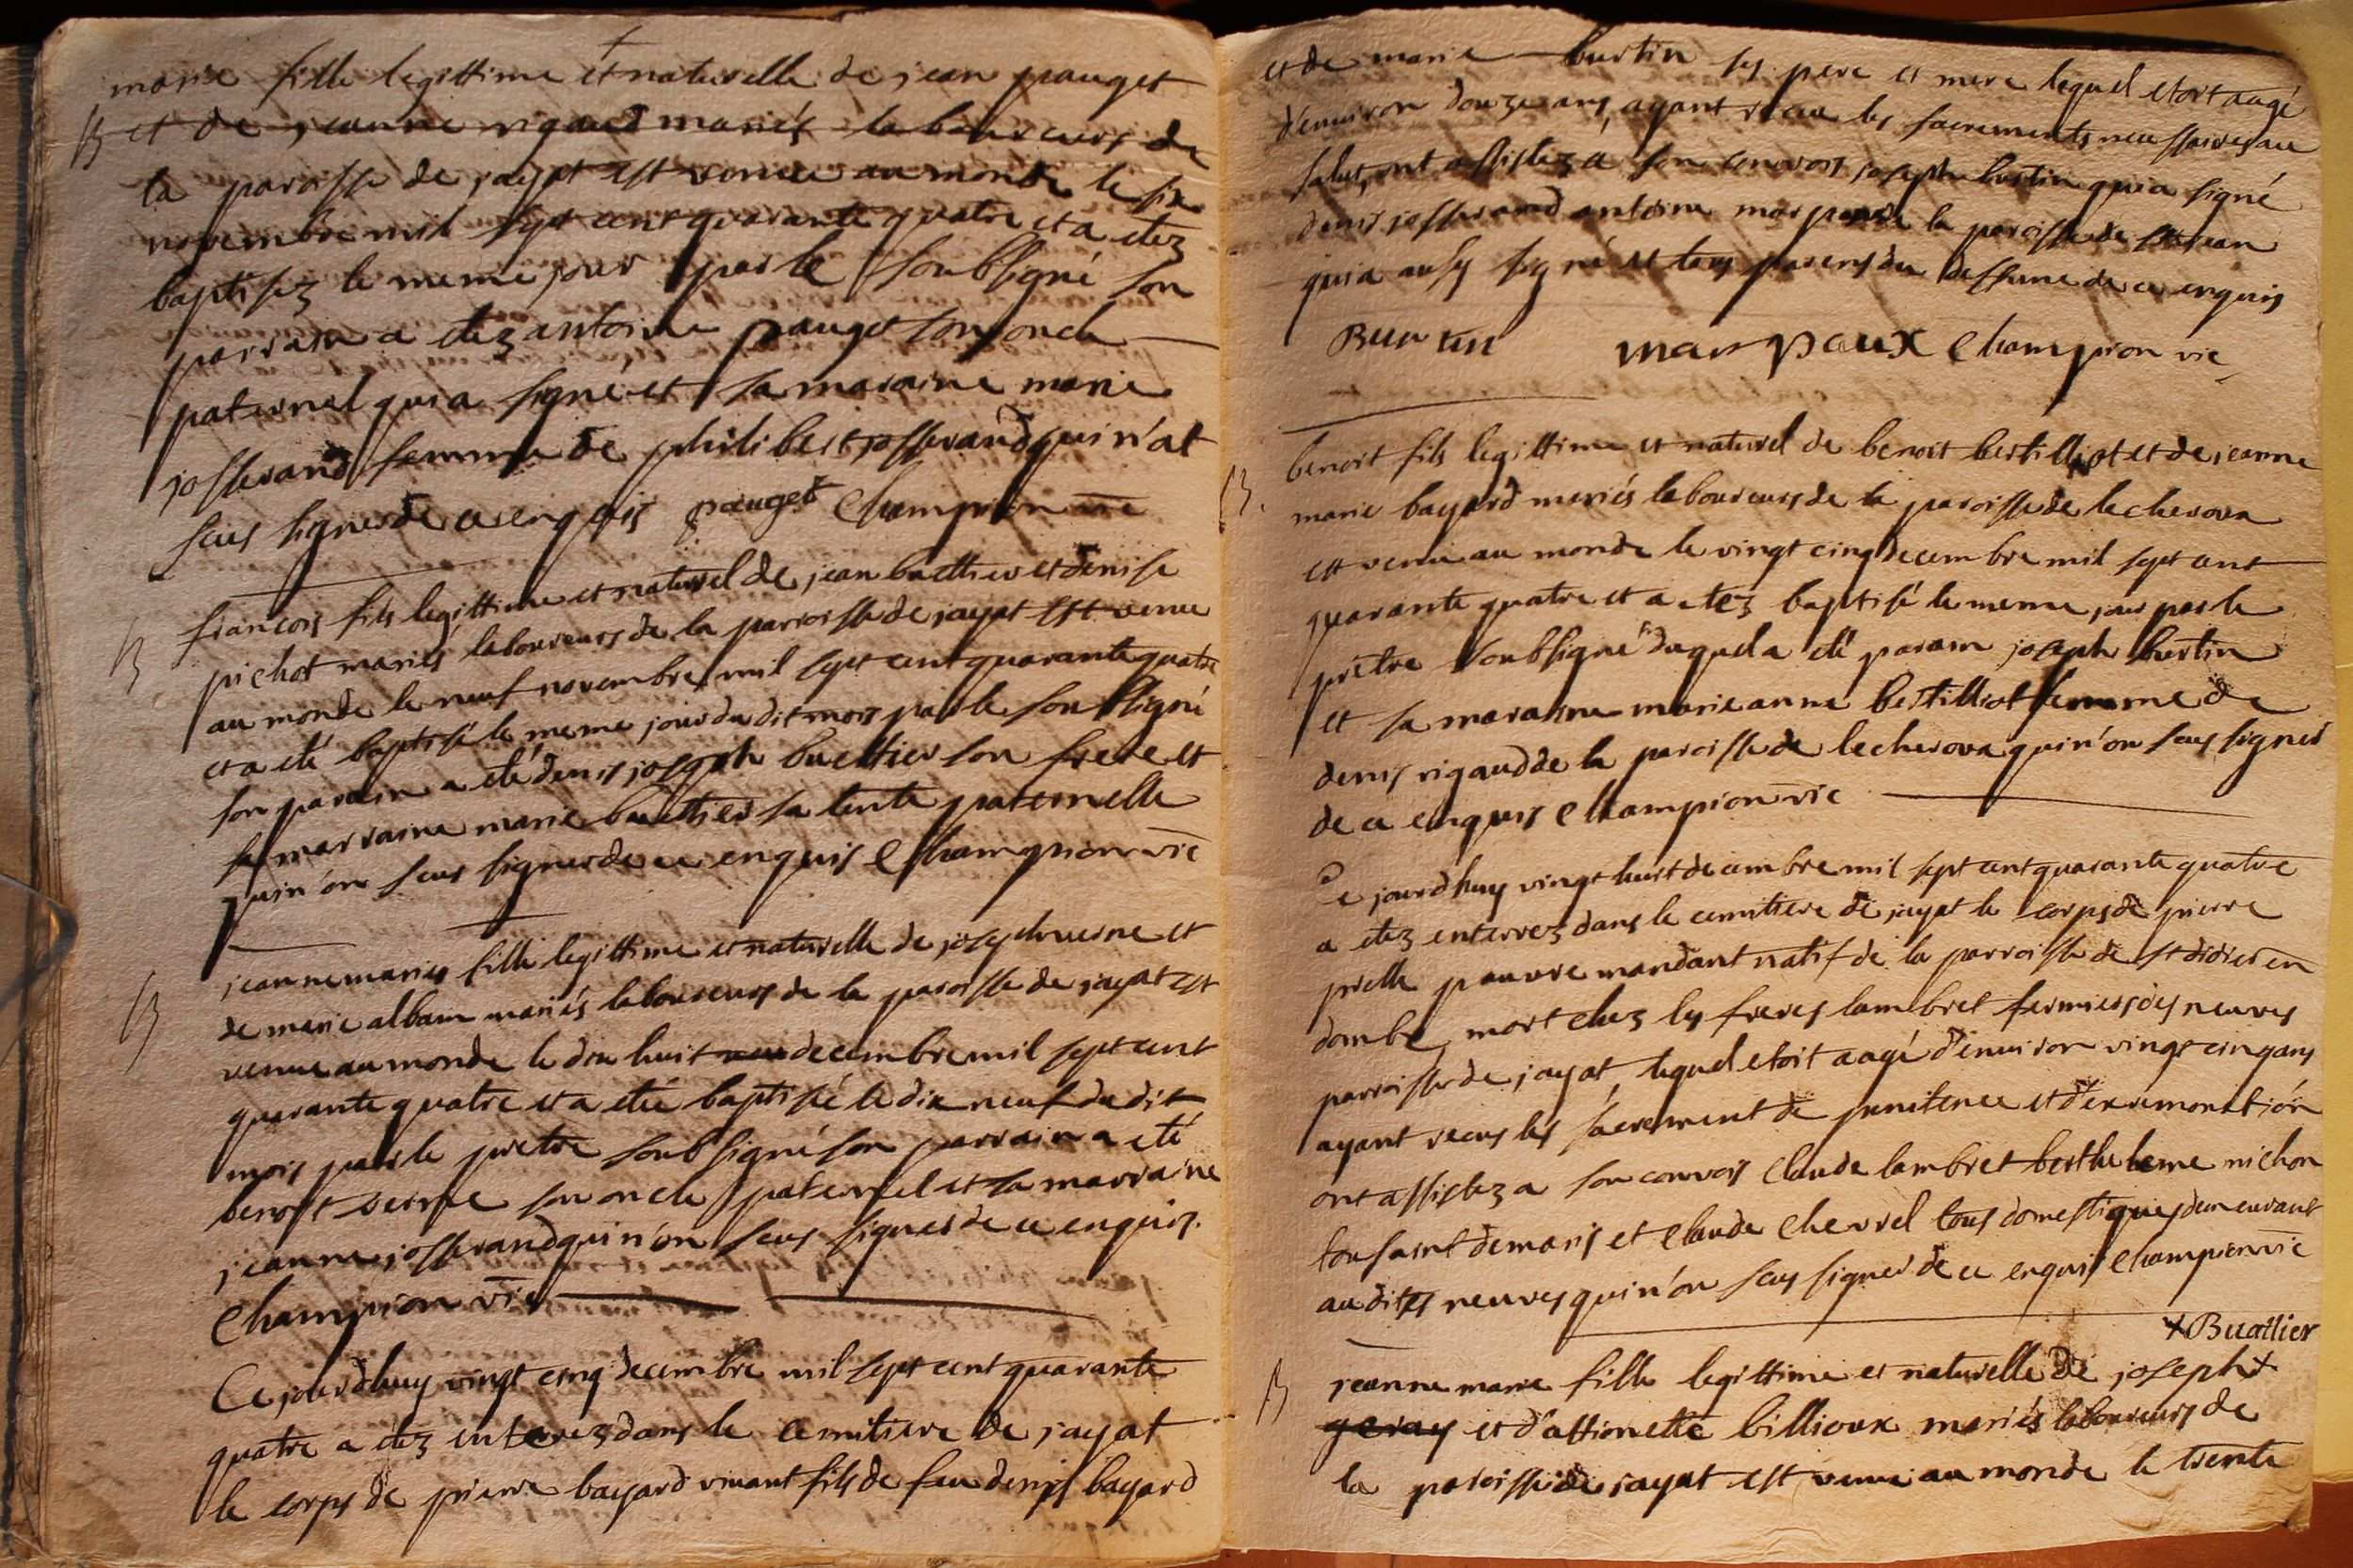 marie fille legittime et naturelle de jean pauget
B et de jeanne rigaud mariés laboureurs de
la paroisse de jayat est venue au monde le six
novembre mil sept cent quarante quatre et a etez
baptisez le meme jour par le soubsigné son
parrain a etez antoine pauget son oncle
paternel qui a signé et sa maraine marie
josserand femme de philibert josserand qui n'at
seus signer de ce enquis pauget Champion vic
B françois fils legittime et naturel de jean buathier et denise
pichot mariés laboureurs de la parroisse de jayat est venue
au monde le neuf novembre mil sept cent quarante quatre
et a eté baptisé le meme jour du dit mois par le soubsigné
son parain a eté denis joseph buathier son frere et
sa marraine marie buathier sa tente paternelle
qui n'on seus signer de ce enquis Champion vic
B jeanne marie fille legittime et naturelle de joseph verne et
de marie alban mariés laboureurs de la paroisse de jayat est
venue au monde le dix huit decembre mil sept cent
quarante quatre et a etée baptisée le dix neuf du dit
mois par le pretre soubsigné son parrain a eté
benoit verne son oncle paternel et sa marraine
jeanne josserand qui n'on seus signer de ce enquis.
Champion vic
Ce jourdhuy vingt cinq decembre mil sept cent quarante
quatre a etez enterrez dans le cemitiere de jayat
le corps de pierre bayard vivant fils de feu denis bayard
et de marie burtin ses pere et mere lequel etoit aagé
d'environ douze ans, ayant receu les sacrements necessaires au
salut, ont assistez a son convois joseph burtin qui a signé
denis josserand antoine marpaux de la paroisse de st jean
qui a aussy signé et tous parens du deffunt de ce enquis
Burtin marpaux Champion vic
benoit fils legittime et naturel de benoit bertilliot et de jeanne
B. marie bayard mariés laboureurs de la paroisse de lecheroux
est venu au monde le vingt cinq decembre mil sept cent
quarante quatre et a etez baptisé le meme jour par le
prêtre soubsigné duquel a eté parain joseph burtin
et sa maraine marie anne bertilliot femme de
denis rigaud de la paroisse de lecheroux qui n'on seus signer
de ce enquis Champion vic
Ce jourdhuy vingt huit decembre mil sept cent quarante quatre
a etez enterrez dans le cemitiere de jayat le corps de pierre
prelle pauvre mandant natif de la parroisse de st didier en
dombe, mort chez les freres lambret fermiers des neuves
parroisse de jayat, lequel etoit aagé d'environ vingt cinq ans
ayant receus les sacrement de penitence et d'extremonction
ont assistez a son convois Claude lambret bertheleme nichon
tousaint demaris et Claude Chevrel tous domestiques demeurant
au dites neuves qui n'on seus signer de ce enquis Champion vic
+ Buathier
B jeanne marie fille legittime et naturelle de joseph +
geray et d'attionette billioux mariés laboureurs de
la paroisse de jayat est venue au monde le trente